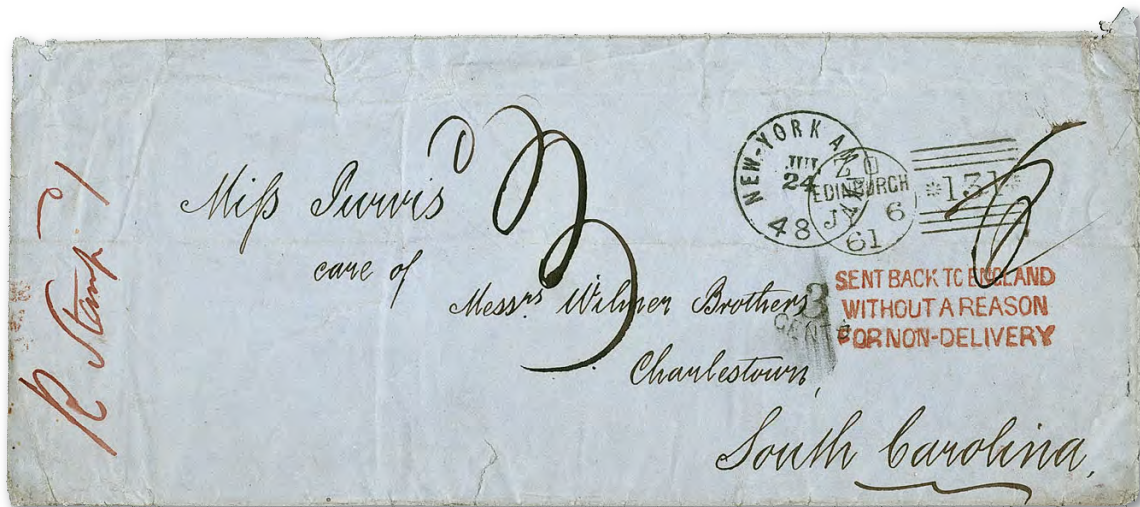 Miss Purvis
care of
Messrs. Wilmer Brothers
Charlestown,
South Carolina,
NEW-YORK AM
24
48
EDINBURGH
JA
6
61
*131*
3
CENTS
SENT BACK TO ENGLAND
WITHOUT A REASON
FOR NON-DELIVERY
3
R Stamp